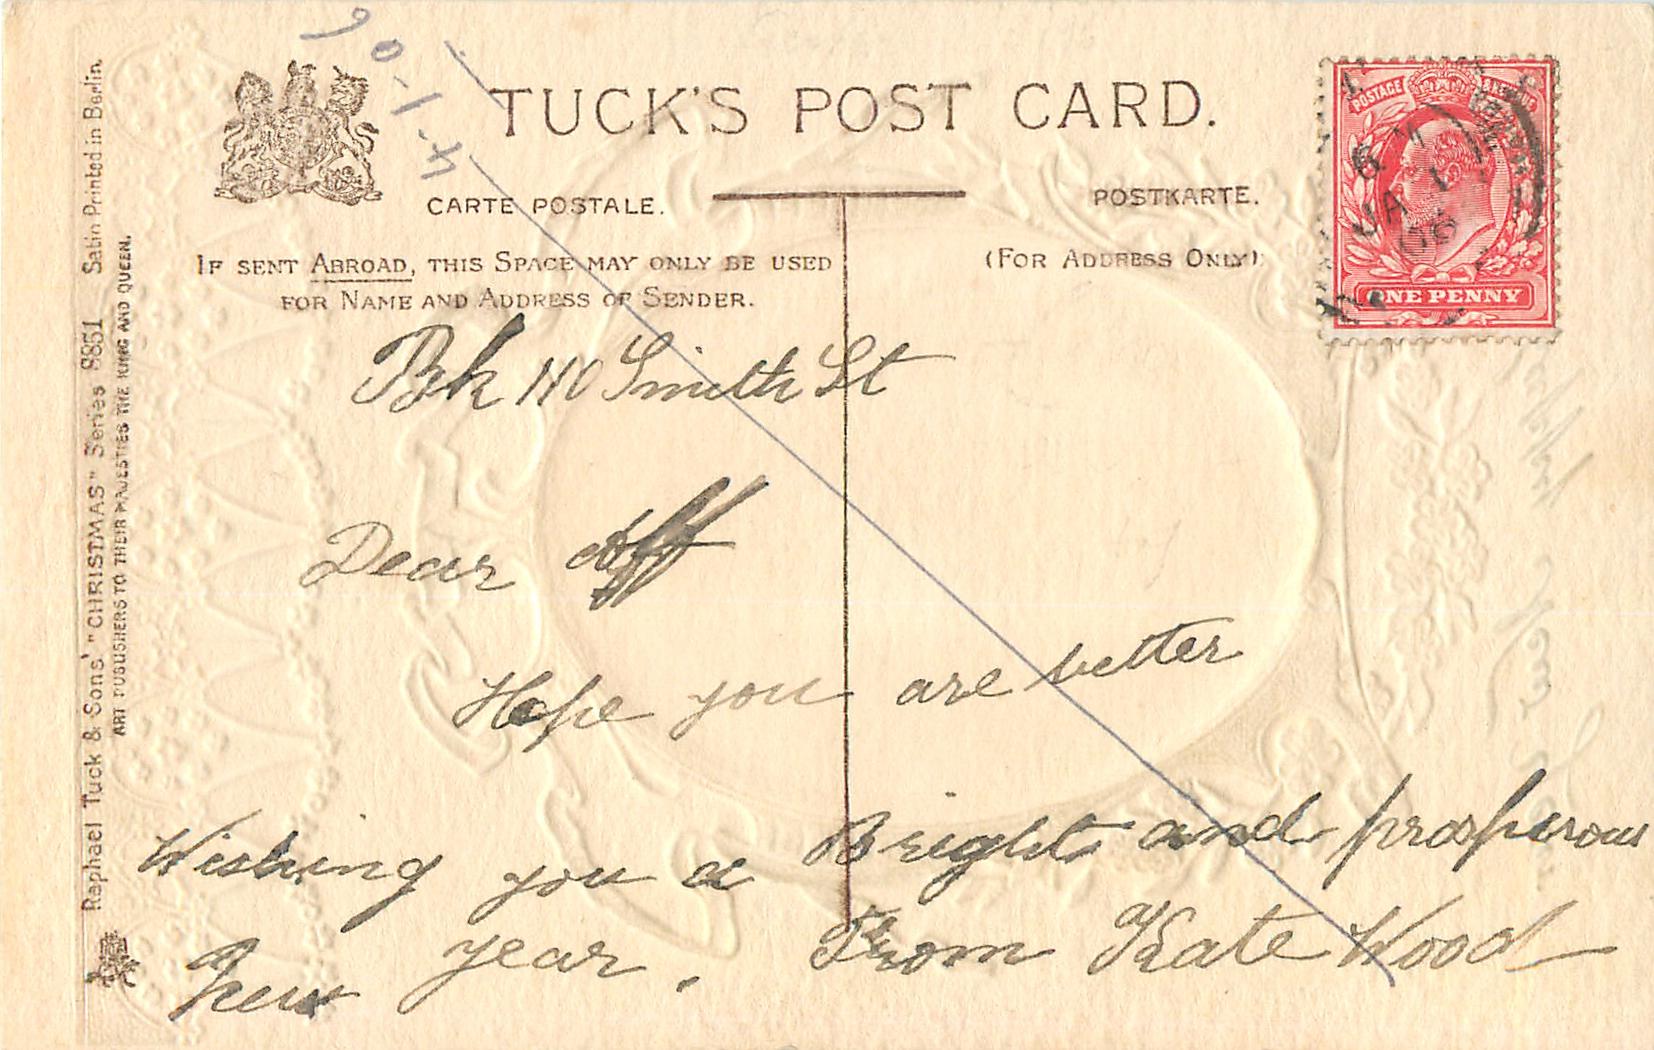 TUCK'S POST CARD.
CARTE POSTALE.
POSTKARTE.
IF SENT ABROAD, THIS SPACE MAY ONLY BE USED
FOR NAME AND ADDRESS OF SENDER.
(FOR ADDRESS ONLY)
POSTAGE & REVENUE
JA 1
06
ONE PENNY
4-1-06
110 Smith St
Dear
Hope you are better
Wishing you a Bright and prosperous
New year. From Kate Wood
Raphael Tuck & Sons' "CHRISTMAS" Series 8851 Satin Printed in Berlin.
ART PUBLISHERS TO THEIR MAJESTIES THE KING AND QUEEN.